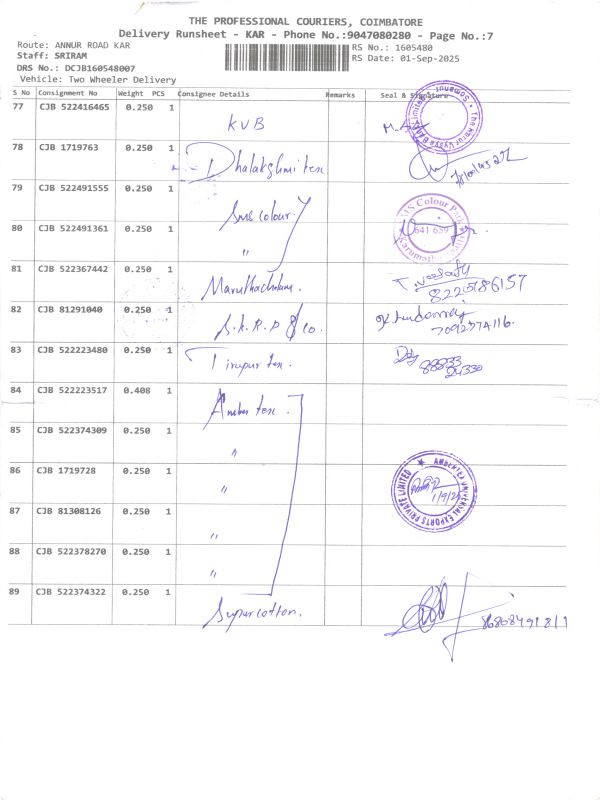 THE PROFESSIONAL COURIERS, COIMBATORE
Delivery Runsheet - KAR - Phone No.:9047080280 - Page No.:7
Route: ANNUR ROAD KAR
RS No.: 1605480
Staff: SRIRAM
RS Date: 01-Sep-2025
DRS No.: DCJB160548007
Vehicle: Two Wheeler Delivery
S No Consignment No Weight PCS Consignee Details Remarks Seal & Signature
77 CJB 522416465 0.250 1 KVB
78 CJB 1719763 0.250 1 Dhalakshmi tex
79 CJB 522491555 0.250 1 Sms colour.
MS Colour Park
641 659
80 CJB 522491361 0.250 1 "
81 CJB 522367442 0.250 1
8225186157
82 CJB 81291040 0.250 1 S.K.R.P & Co.
7092574116.
83 CJB 522223480 0.250 1 Tirupur tex.
88833
24330
84 CJB 522223517 0.408 1 Amber tex.
85 CJB 522374309 0.250 1 "
86 CJB 1719728 0.250 1 "
AMBERTEX UNIVERSAL EXPORTS PRIVATE LIMITED
1/9/25
87 CJB 81308126 0.250 1 "
88 CJB 522378270 0.250 1 "
89 CJB 522374322 0.250 1 Supercotton.